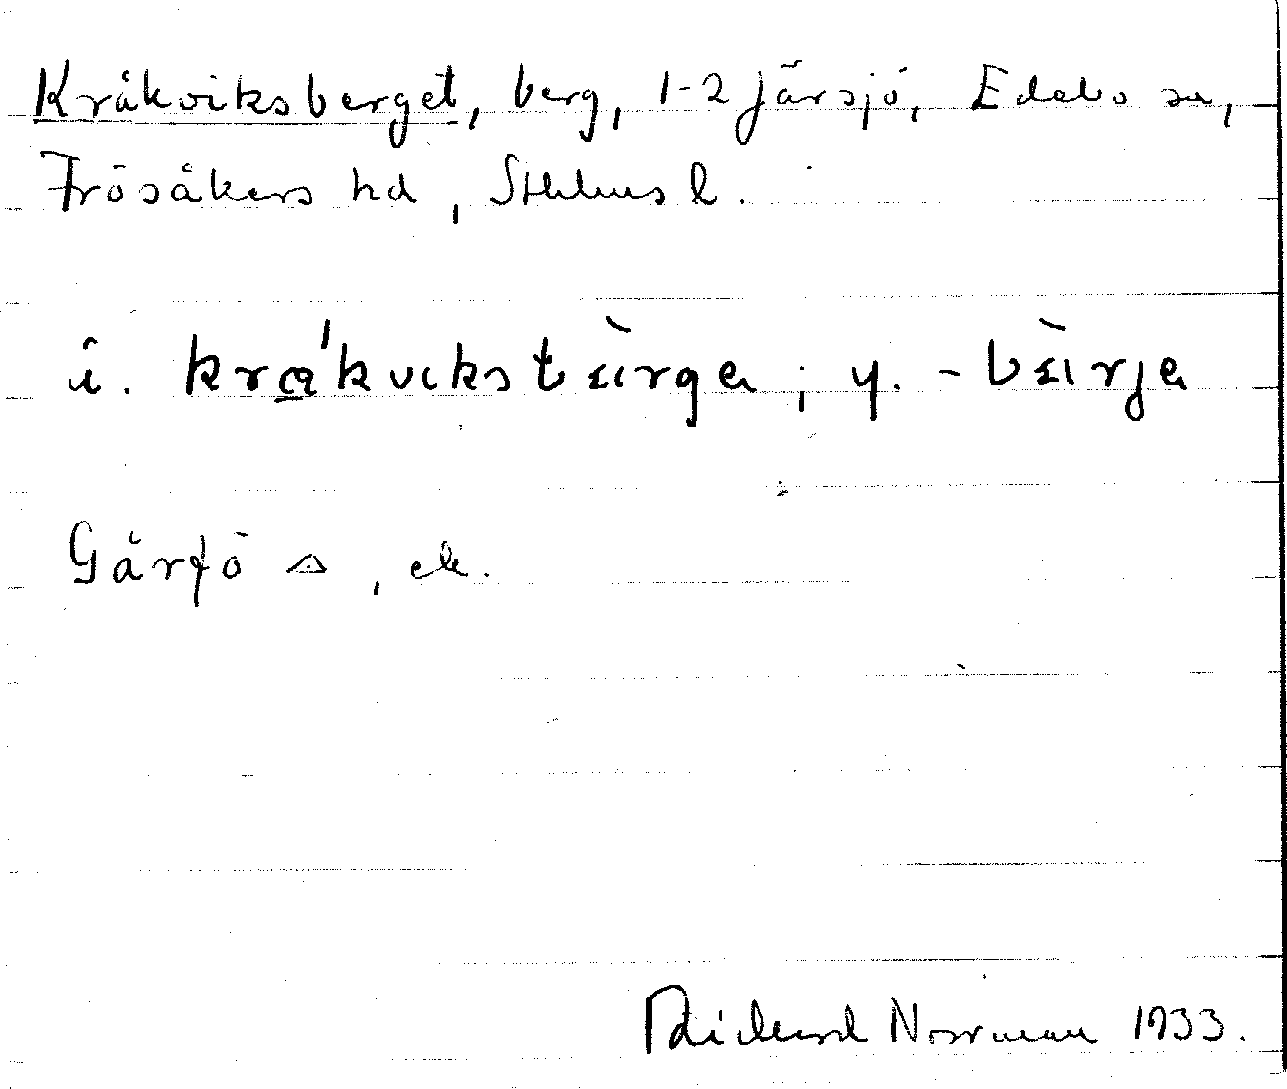 Kråkviksberget, berg, 1-2 Järsjö, Edebo sn,
Frösåkers hd, Sthlms l.
i. krά̲kvıksbæ̀rga ; y. - bæ̀rja
Gårfö △, ek.
Rickard Norrman 1933.